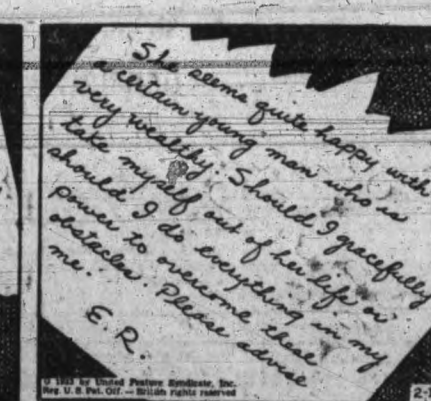 She seems quite happy with
a certain young man who is
very wealthy. Should I gracefully
take myself out of her life or
should I do everything in my
power to overcome these
obstacles. Please advise
me.
E.R.
© 1953 by United Feature Syndicate, Inc.
Reg. U. S. Pat. Off. — British rights reserved